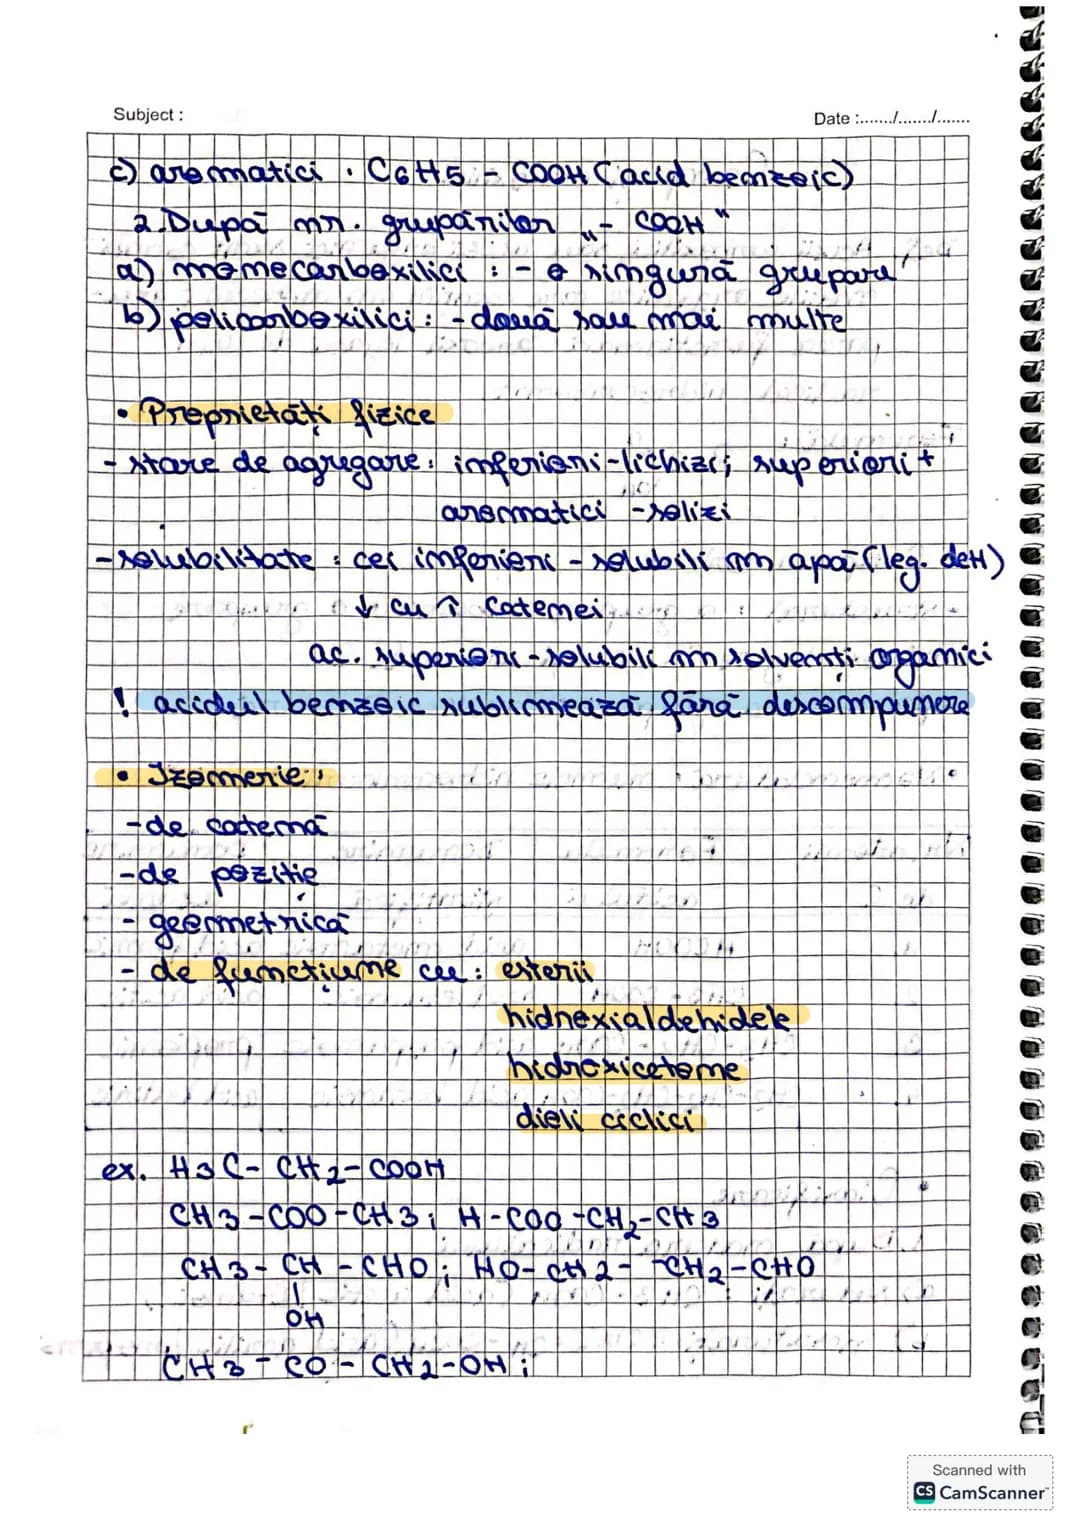 Subject :
Date :......./......./.......
c) aromatici : C6H5 - COOH (acid benzoic)
2. După nr. grupărilor „- COOH"
a) monocarboxilici : - o singură grupare
b) policarboxilici : - două sau mai multe
• Proprietăți fizice
- stare de agregare: inferiori-lichizi; superiori +
aromatici - solizi
- solubilitate : cei inferiori - solubili în apă (leg. de H)
↓ cu ↑ catenei
ac. superiori - solubili în solvenți organici
! acidul benzoic sublimează fără descompunere
• Izomerie:
- de catenă
- de poziție
- geometrică
- de funcțiune cu : esterii
hidroxialdehidele
hidroxicetone
dioli ciclici
ex. H3C - CH2 - COOH
CH3 - COO - CH3 ; H - COO - CH2 - CH3
CH3 - CH - CHO ; HO - CH2 - CH2 - CHO
|
OH
CH3 - CO - CH2 - OH ;
Scanned with
CS CamScanner